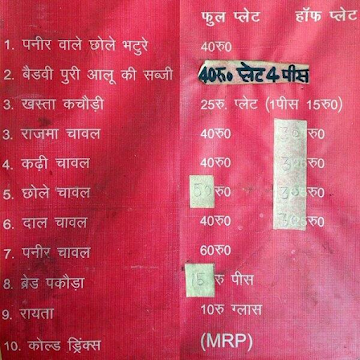 फुल प्लेट हॉफ प्लेट
1. पनीर वाले छोले भटुरे 40रु0
2. बैडवी पुरी आलू की सब्जी 40रु० प्लेट 4 पीस
3. खस्ता कचौड़ी 25रु. प्लेट (1पीस 15रु0)
3. राजमा चावल 40रु0 रु0
4. कढ़ी चावल 40रु0 रु0
5. छोले चावल 50रु0 रु0
6. दाल चावल 40रु0 रु0
7. पनीर चावल 60रु0
8. ब्रेड पकौड़ा 15रु पीस
9. रायता 10रु ग्लास
10. कोल्ड ड्रिंक्स (MRP)